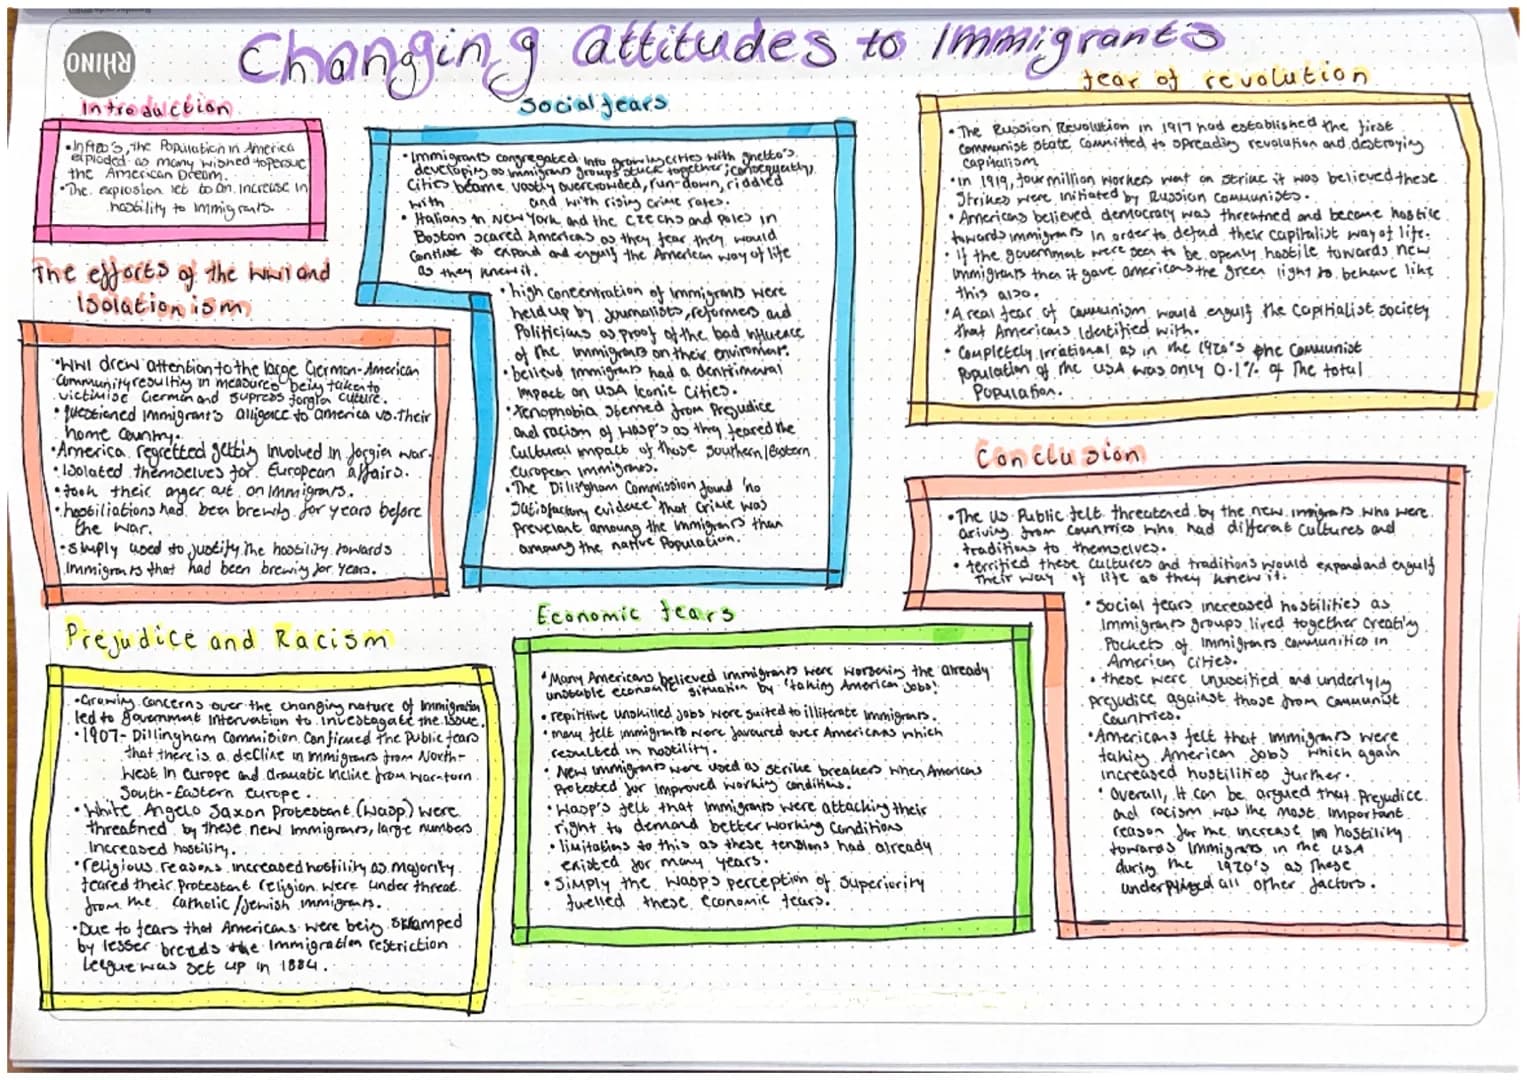 RHINO
Changing attitudes to Immigrants
Introduction
• In 1920's, the Population in America
exploded as many wished to persue
the American Dream.
• The explosion let to an increase in
hostility to Immigrants.
The effects of the WWI and
Isolationism
• WWI drew attention to the large German-American
Community resulting in measures being taken to
victimise German and supress forgin culture.
• questioned Immigrant's alligence to america vs. their
home country.
• America regretted getting involved in forgien war.
• Isolated themselves for European affairs.
• took their anger out on Immigrants.
• hostiliations had been brewing for years before
the war.
• Simply used to justify the hostility towards
Immigrants that had been brewing for years.
Prejudice and Racism
• Growing concerns over the changing nature of Immigration
led to government Intervention to Investagate the issue.
• 1907- Dillingham Commision Confirmed the Public fears
that there is a decline in immigrants from North-
West In Europe and dramatic incline from war-torn
South-Eastern Europe.
• White Angelo Saxon Protestant (Wasp) were
threatned by these new Immigrants, large numbers
Increased hostility.
• religious reasons increased hostility as majority
feared their Protestant religion were under threat
from the Catholic/Jewish immigrants.
• Due to fears that Americans were being swamped
by lesser breeds the Immigration restriction
league was set up in 1884.
Social fears
• Immigrants congregated into growing cities with ghetto's
developing as immigrant groups stuck together; consequently,
Cities became vastly overcrowded, run-down, riddled
with and with rising crime rates.
• Italians in New York and the Czechs and Poles in
Boston scared Americans as they fear they would
Continue to expand and engulf the American way of life
as they knew it.
• high concentration of immigrants were
held up by Journalists, reformers and
Politicians as proof of the bad influence
of the immigrants on their enviroment.
• believd Immigrants had a
impact on USA Iconic Cities.
• Xenophobia stemed from Prejudice
and racism of WASP's as they feared the
Cultural impact of those Southern/Eastern
european immigrants.
• The Dillingham Commission found 'no
Satisfactory evidence' that crime was
prevelant amoung the immigrants than
amoung the native Population.
Economic fears
• Many Americans believed immigrants were worsening the already
unstable economic situation by 'taking American Jobs'.
• repititive unskilled jobs were suited to illiterate immigrants.
• many felt immigrants were favoured over Americans which
resulted in hostility.
• New immigrants were used as strike breakers when Americans
Protested for improved working conditions.
• Wasp's felt that immigrants were attacking their
right to demand better working Conditions
• limitations to this as these tensions had already
existed for many years.
• Simply the WASPs perception of Superiority
fuelled these economic fears.
fear of revolution
• The Russian Revolution in 1917 had established the first
Communist State committed to spreading revolution and destroying
Capitalism
• in 1919, four million workers went on strike it was believed these
Strikes were initiated by Russian communists.
• Americans believed democracy was threatned and become hostile
towards immigrants in order to defend their capitalist way of life.
• if the government were seen to be openly hostile towards new
immigrants then it gave americans the green light to behave like
this also.
• A real fear of Communism would engulf the Capitialist society
that Americans Identified with.
• Completely irrational as in the 1920's the Communist
Population of the USA was only 0.1% of the total
Population.
Conclusion
• The US Public felt threatened by the new immigrants who were
ariving from countries who had different Cultures and
traditions to themselves.
• terrified these cultures and traditions would expand and engulf
their way of life as they knew it.
• Social fears increased hostilities as
Immigrants groups lived together creating
Pockets of immigrants communities in
American cities.
• these were and underlying
prejudice against those from Communist
Countries.
• Americans felt that immigrants were
taking American Jobs which again
increased hostilities further.
• Overall, it can be argued that Prejudice
and racism was the most important
reason for the increase in hostility
towards immigrants in the USA
during the 1920's as these
all other factors.